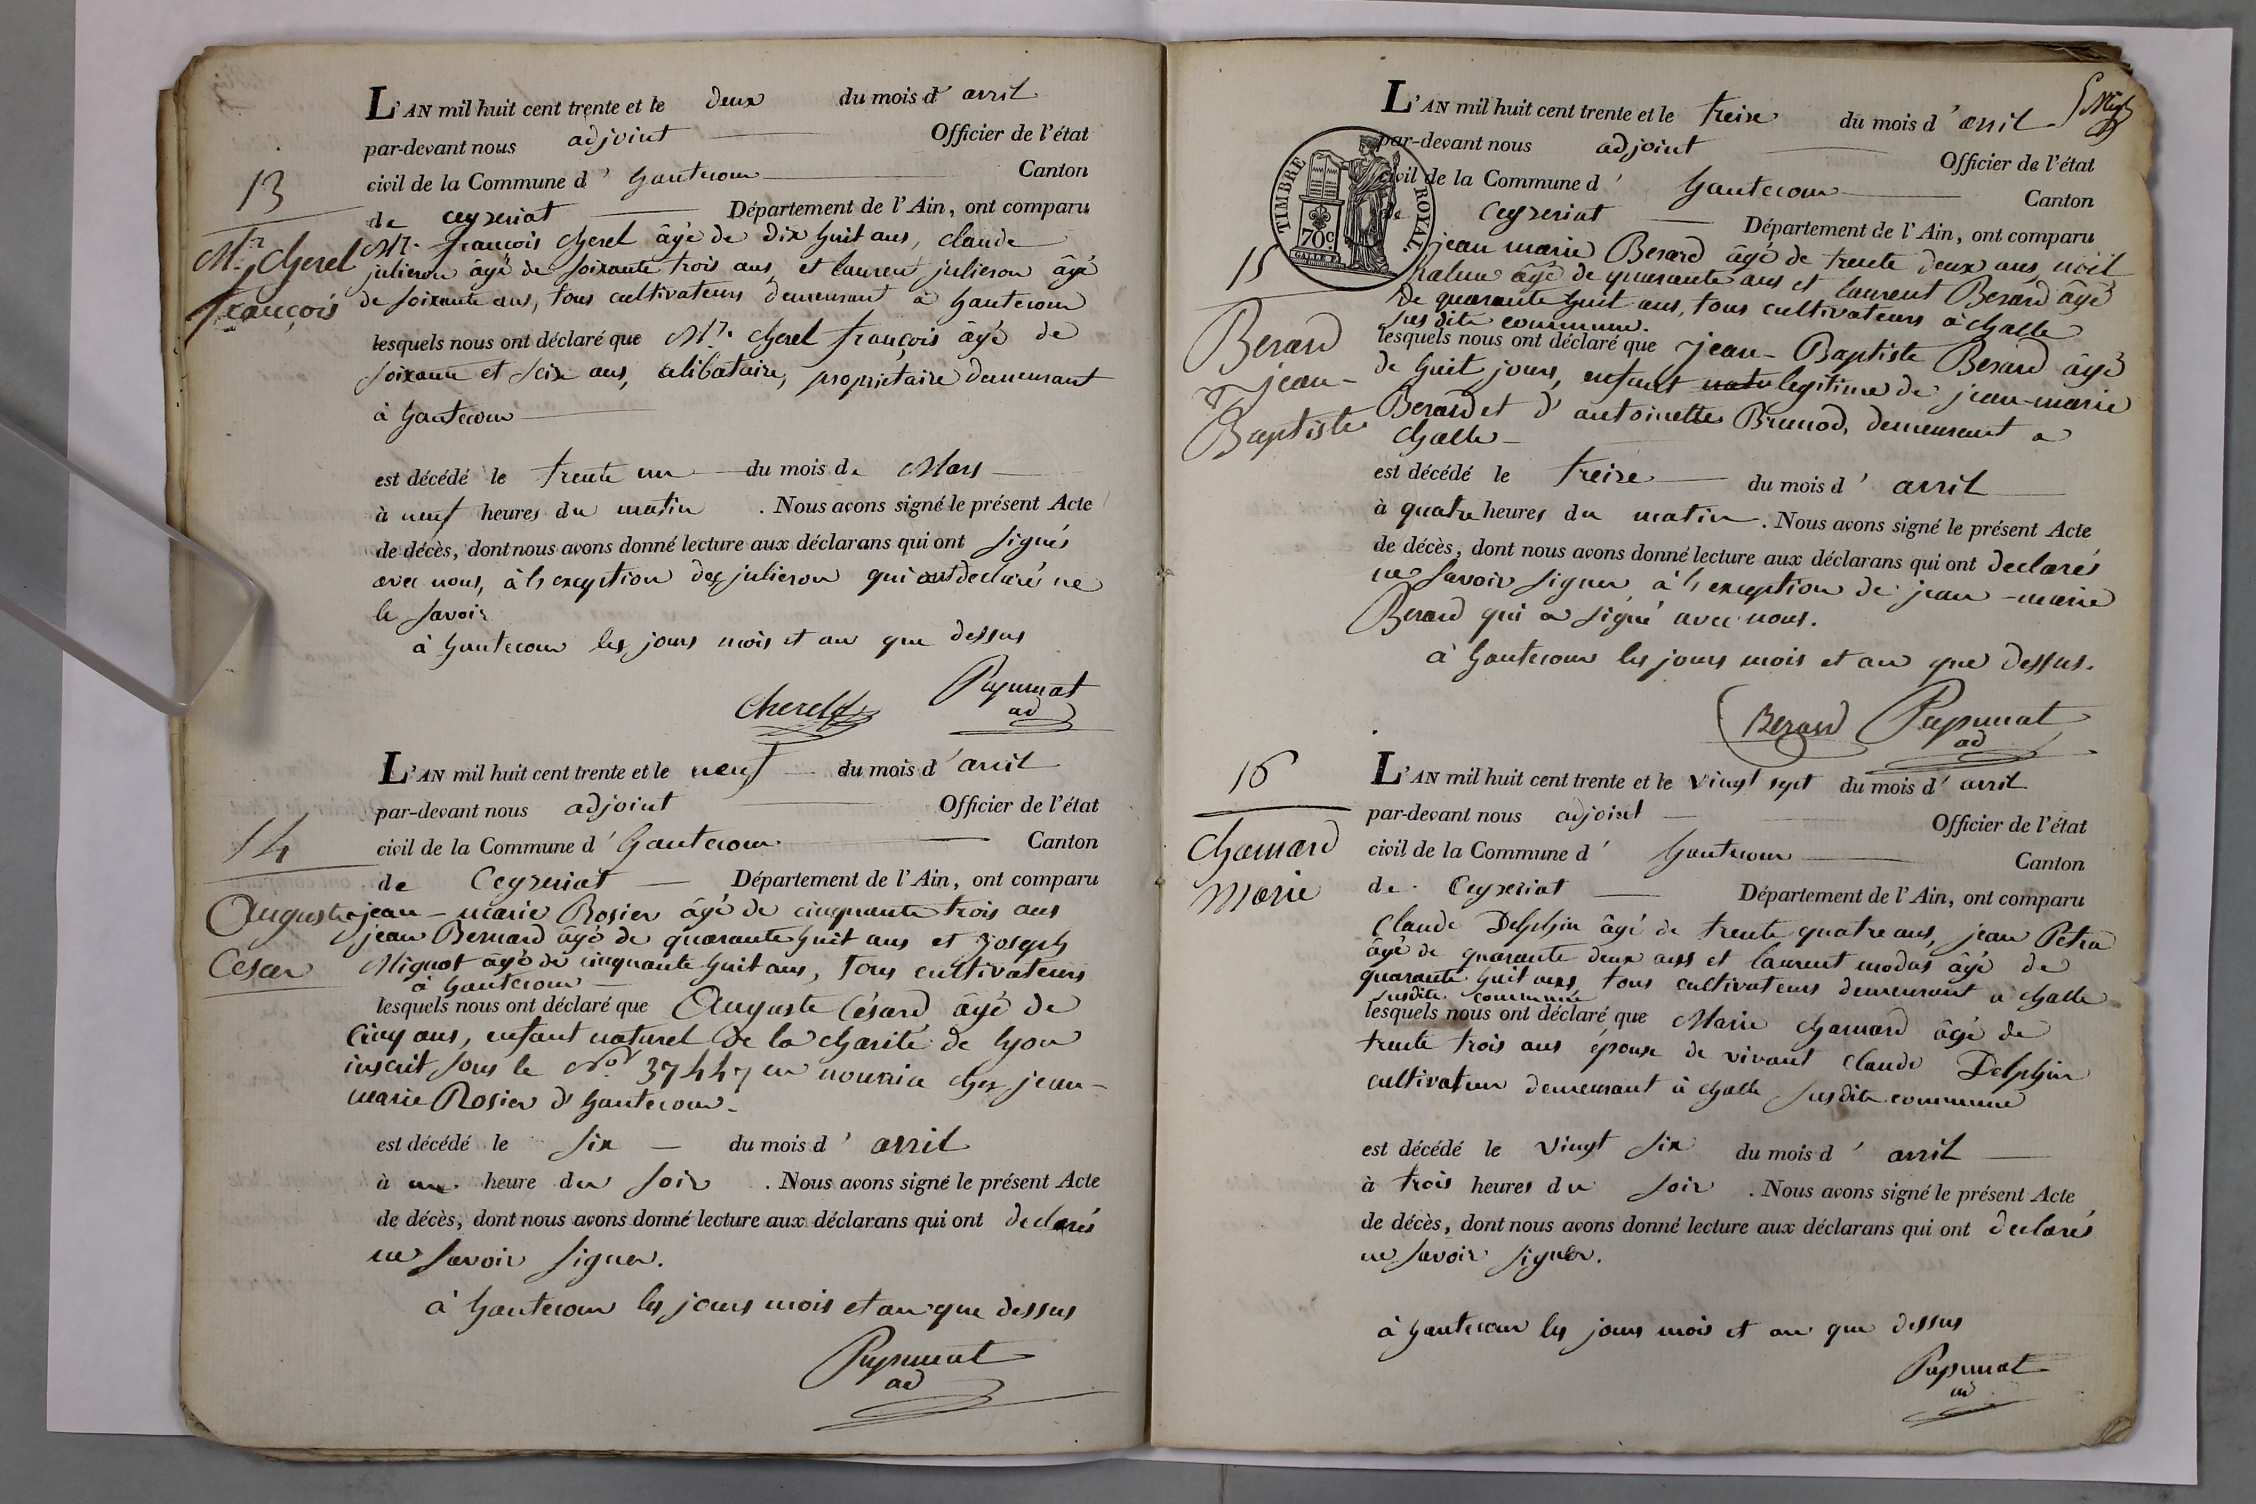 13
Mr. Cherel
françois
L'AN mil huit cent trente et le deux du mois d'avril
par-devant nous adjoint Officier de l'état
civil de la Commune d'hautecour Canton
de ceyzeriat Département de l'Ain, ont comparu
Mr. françois Cherel âgé de dix huit ans, claude
julieron âgé de soixante trois ans et laurent julieron âgé
de soixante ans, tous cultivateurs demeurant à hautecour
lesquels nous ont déclaré que Mr. cherel françois âgé de
soixante et seize ans, celibataire, proprietaire demeurant
à hautecour
est décédé le trente un du mois de Mars
à neuf heures du matin. Nous avons signé le présent Acte
de décès, dont nous avons donné lecture aux déclarans qui ont signés
avec nous, à l'exception des julieron qui ont declaré ne
le savoir
à hautecour les jours mois et an que dessus
Cherel
Papunat
ad
14
Auguste
Cesar
L'AN mil huit cent trente et le neuf du mois d'avril
par-devant nous adjoint Officier de l'état
civil de la Commune d'hautecour Canton
de Ceyzeriat Département de l'Ain, ont comparu
jean-marie Rosier âgé de cinquante trois ans
jean Bernard âgé de quarante huit ans et joseph
Mignot âgé de cinquante huit ans, tous cultivateurs
à hautecour
lesquels nous ont déclaré que Auguste Césard âgé de
Cinq ans, enfant naturel de la charité de lyon
inscrit sous le No. 37447 en nourrice chez jean-
marie Rosier d'hautecour.
est décédé le six du mois d'avril
à une heure du soir. Nous avons signé le présent Acte
de décès, dont nous avons donné lecture aux déclarans qui ont declarés
ne savoir signer.
à hautecour les jours mois et an que dessus
Papunat
ad
TIMBRE ROYAL
70c
15
Berard
jean-
Baptiste
L'AN mil huit cent trente et le treize du mois d'avril
par-devant nous adjoint Officier de l'état
civil de la Commune d'hautecour Canton
de Ceyzeriat Département de l'Ain, ont comparu
jean marie Berard âgé de trente deux ans, noël
âgé de quarante ans et laurent Berard âgé
de quarante huit ans, tous cultivateurs à challe
susdite commune.
lesquels nous ont déclaré que jean-Baptiste Berard âgé
de huit jours, enfant natu legitime de jean-marie
Berard et d'antoinette Brunod, demeurant a
challe
est décédé le treize du mois d'avril
à quatre heures du matin. Nous avons signé le présent Acte
de décès, dont nous avons donné lecture aux déclarans qui ont declarés
ne savoir signer à l'exception de jean-marie
Berard qui a signé avec nous.
à hautecour les jours mois et an que dessus.
Berard
Papunat
ad
16
Chamard
Marie
L'AN mil huit cent trente et le vingt sept du mois d'avril
par-devant nous adjoint Officier de l'état
civil de la Commune d'hautecour Canton
de Ceyzeriat Département de l'Ain, ont comparu
Claude Delphin âgé de trente quatre ans, jean Petra
âgé de quarante deux ans et laurent modas âgé de
quarante huit ans, tous cultivateurs demeurant à challe
susdite commune
lesquels nous ont déclaré que Marie chamard âgé de
trente trois ans épouse de vivant Claude Delphin
cultivateur demeurant à challe susdite commune
est décédé le vingt six du mois d'avril
à trois heures du soir. Nous avons signé le présent Acte
de décès, dont nous avons donné lecture aux déclarans qui ont declarés
ne savoir signer.
à hautecour les jours mois et an que dessus
Papunat
ad